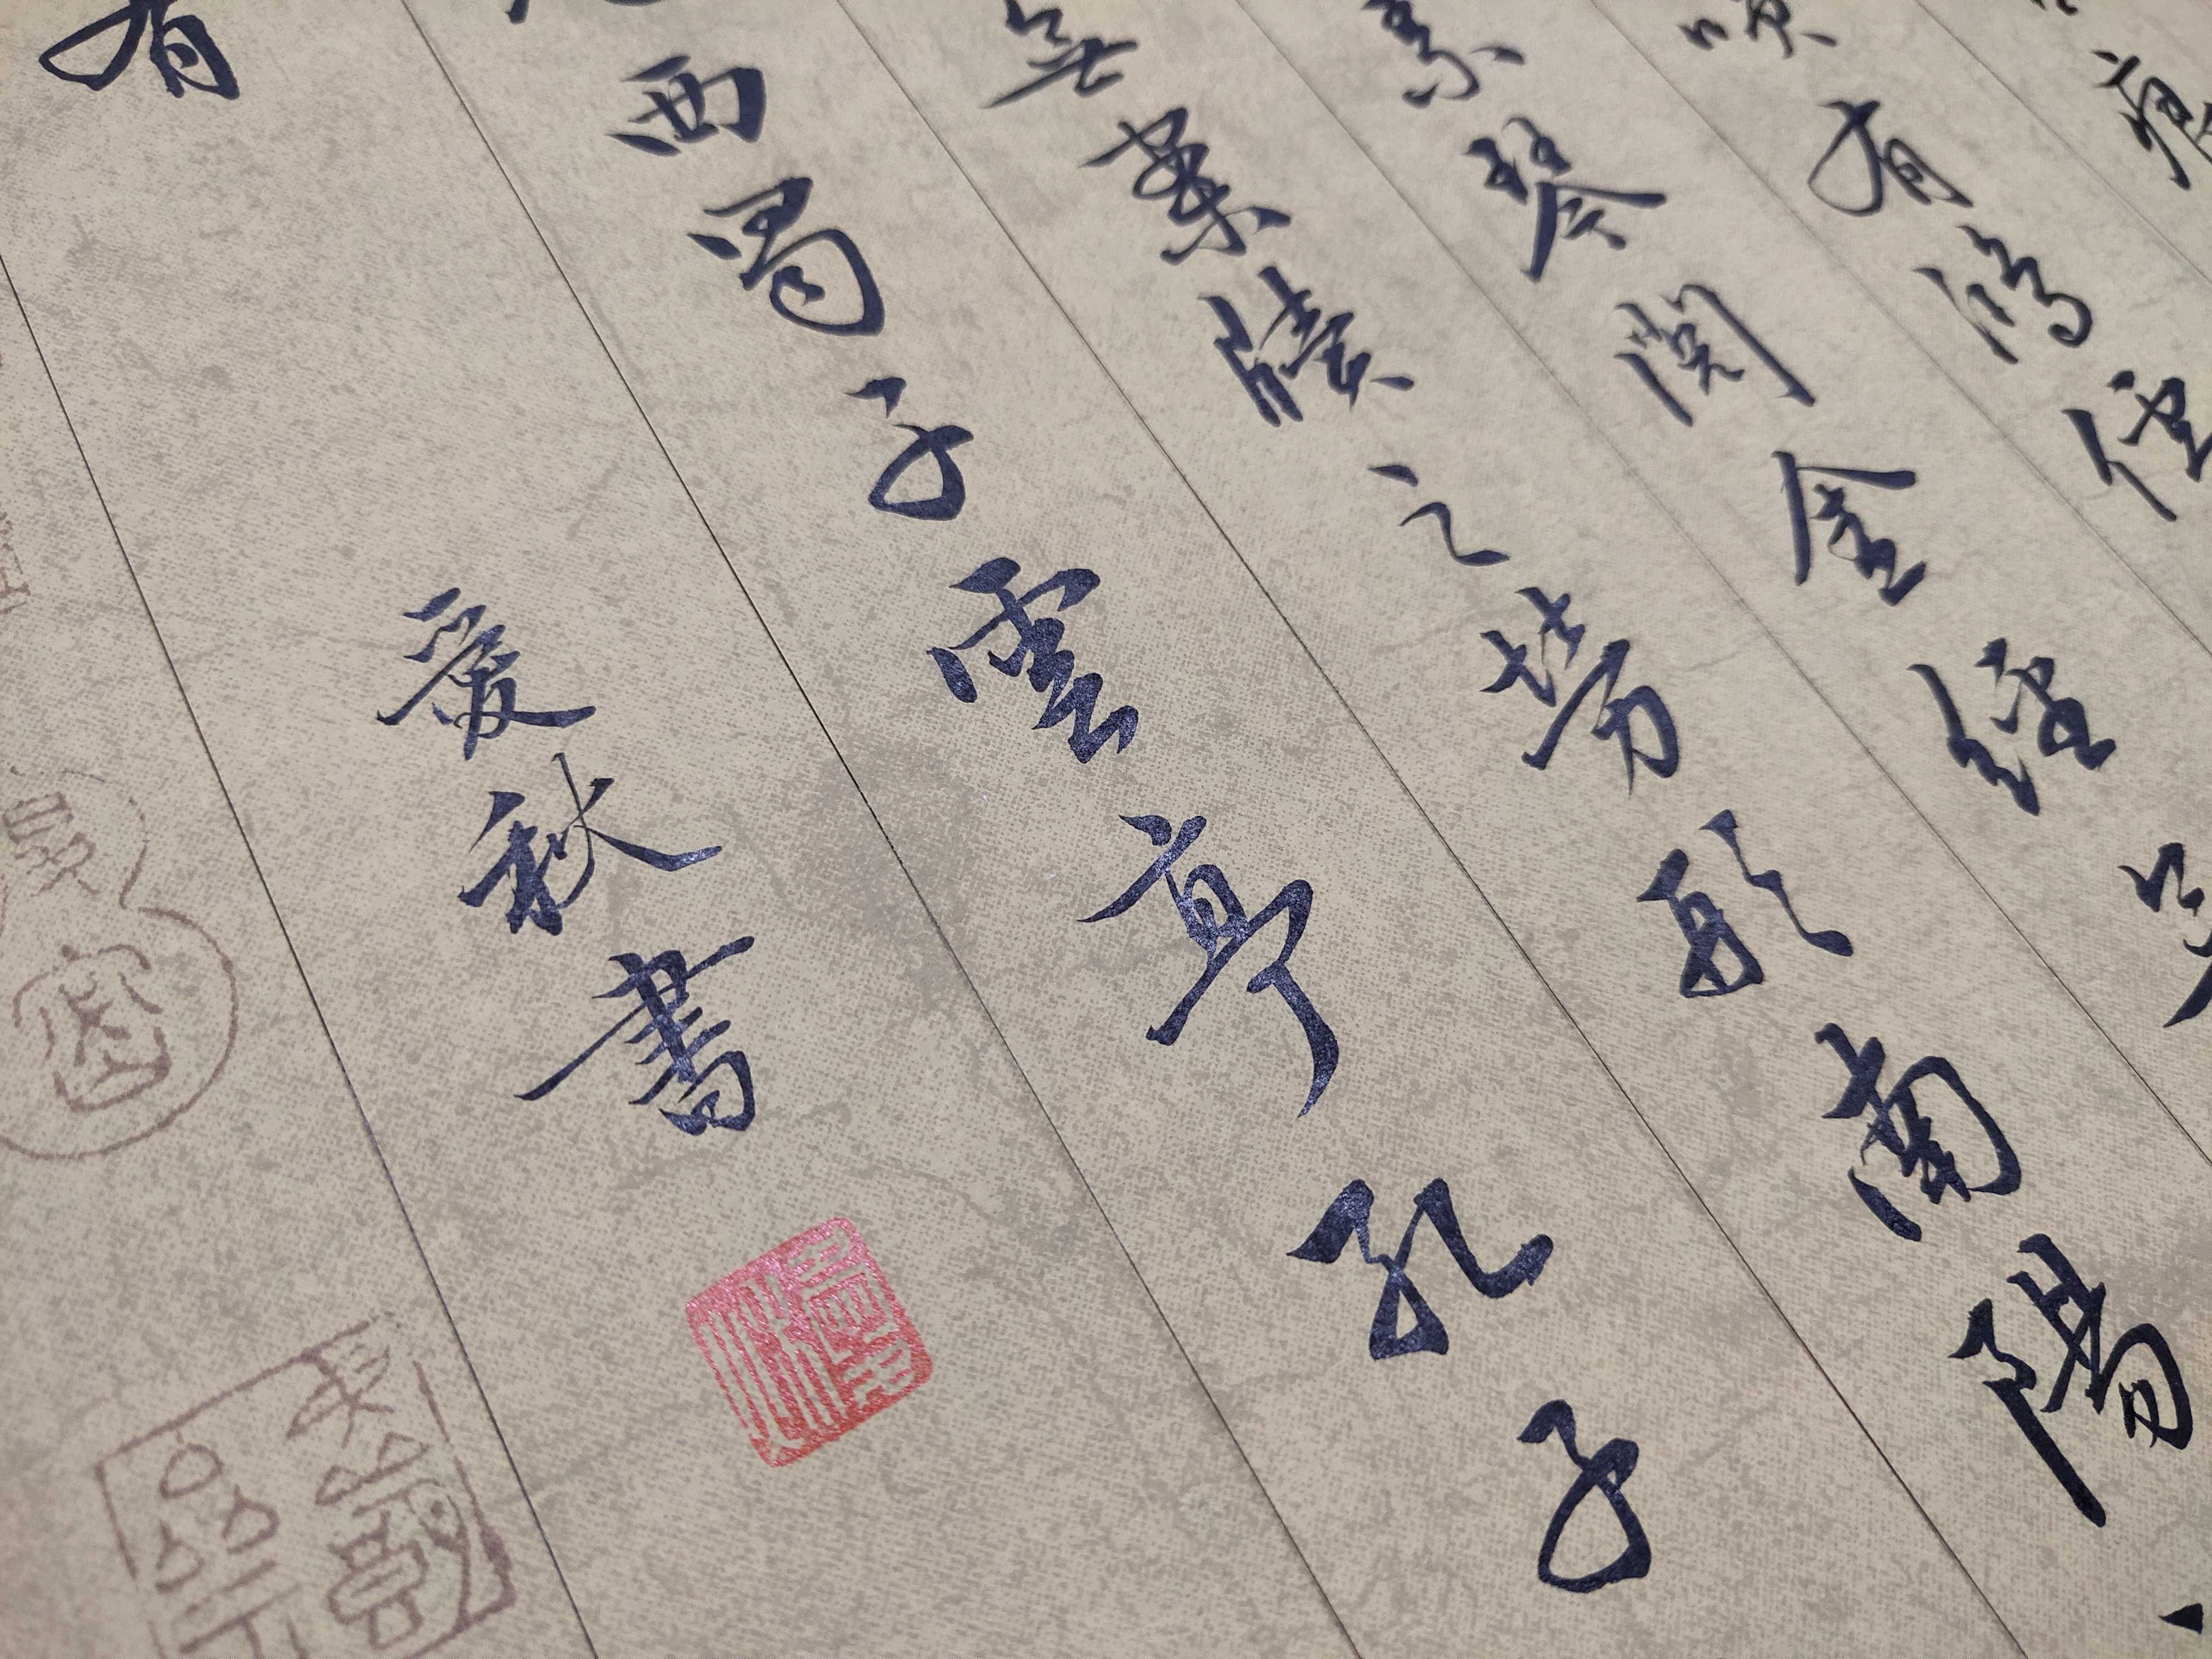 痕
咲有鴻儒
素琴閱金經無
無案牘之勞形南陽
西蜀子雲亭孔子
有
爱秋書